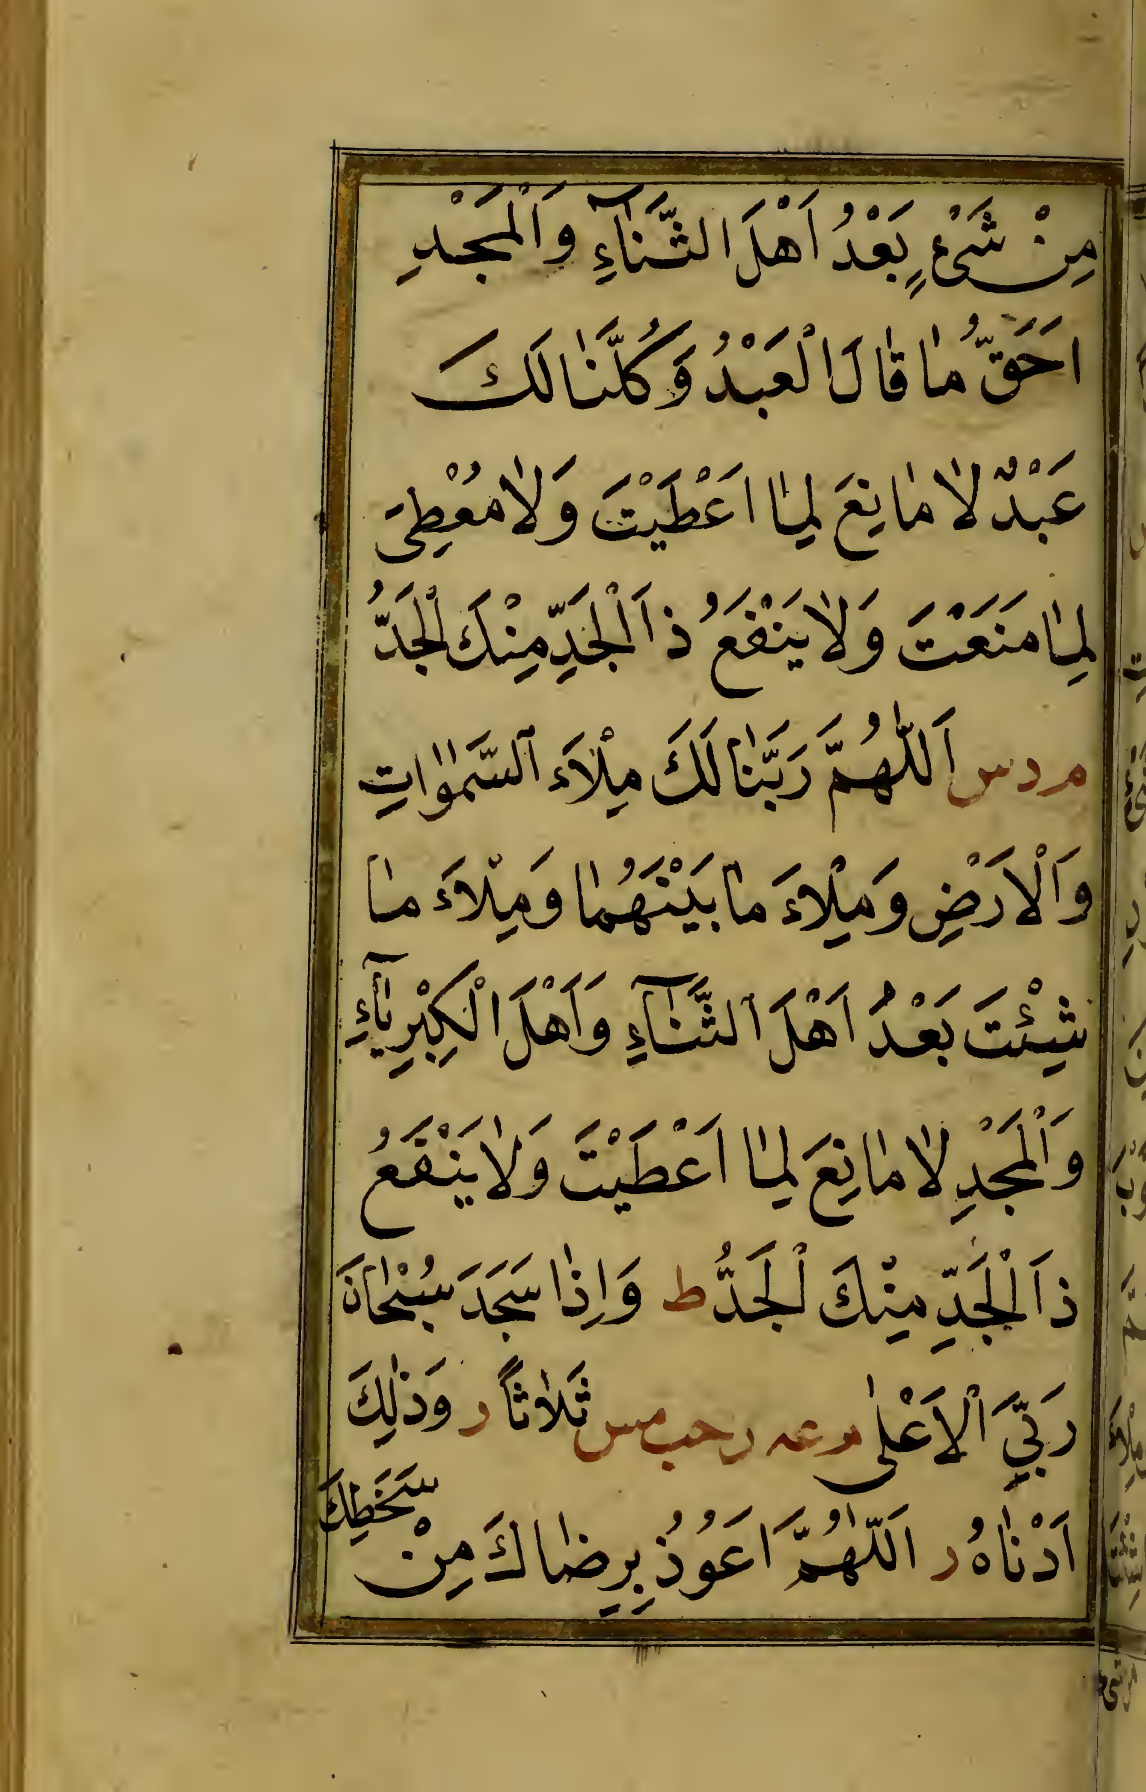 مِنْ شَىْءٍ بَعْدُ اَهْلَ الثَّنَآءِ وَالْمَجْدِ
اَحَقُّ مَا قَالَ الْعَبْدُ وَكُلُّنَا لَكَ
عَبْدٌ لَا مَانِعَ لِمَا اَعْطَيْتَ وَلَا مُعْطِىَ
لِمَا مَنَعْتَ وَلَا يَنْفَعُ ذَا الْجَدِّ مِنْكَ الْجَدُّ
م د س اَللّٰهُمَّ رَبَّنَا لَكَ مِلْاَءَ السَّمٰوَاتِ
وَالْاَرْضِ وَمِلْاَءَ مَا بَيْنَهُمَا وَمِلْاَءَ مَا
شِئْتَ بَعْدُ اَهْلَ الثَّنَآءِ وَاَهْلَ الْكِبْرِيَآءِ
وَالْمَجْدِ لَا مَانِعَ لِمَا اَعْطَيْتَ وَلَا يَنْفَعُ
ذَا الْجَدِّ مِنْكَ الْجَدُّ ط وَاِذَا سَجَدَ سُبْحَانَ
رَبِّيَ الْاَعْلٰى م عه ر حب مس ثَلَاثًا ر وَذٰلِكَ
اَدْنَاهُ ر اَللّٰهُمَّ اَعُوذُ بِرِضَاكَ مِنْ سَخَطِكَ